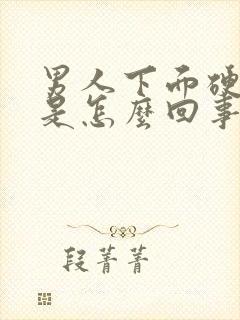 男人下面硬
是怎麼回事
段菁菁